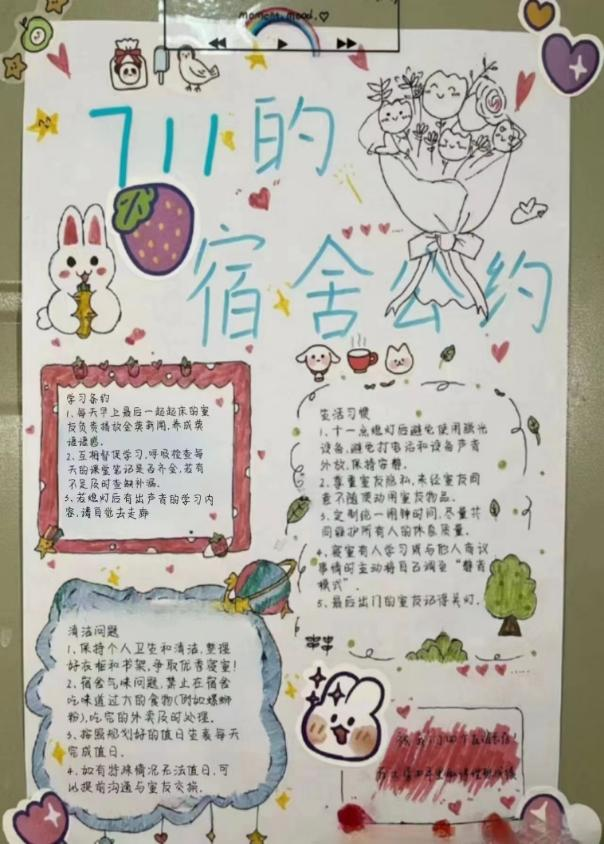 moment.mood.♡
711的
宿舍公约
学习条约
1、每天早上最后一起起床的室
友负责播放全英新闻,养成英
语语感.
2、互相督促学习,呼吸检查每
天的课堂笔记是否齐全,若有
不足及时查缺补漏.
3、若熄灯后有出声音的学习内
容,请自觉去走廊
生活习惯
1、十一点熄灯后避免使用强光
设备,避免打电话和设备声音
外放,保持安静.
2、尊重室友隐私,未经室友同
意不随便动用室友物品.
3、定制统一闹钟时间,尽量共
同维护所有人的休息质量.
4、寝室有人学习或与他人有议
事情时主动将自己调至“静音
模式”.
5、最后出门的室友记得关灯.
清洁问题
1、保持个人卫生和清洁,整理
好衣柜和书架,争取优秀寝室!
2、宿舍气味问题,禁止在宿舍
吃味道过大的食物(例如螺蛳
粉),吃完的外卖及时处理.
3、按照规划好的值日生表每天
完成值日.
4、如有特殊情况无法值日,可
以提前沟通与室友交换.